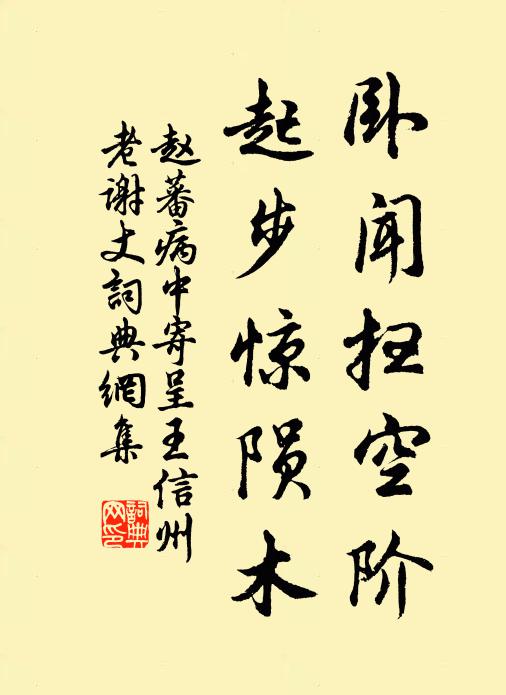 卧闻扫空阶
起步惊陨木
赵蕃病中寄呈王信州
老谢丈詞典網集
詞典
网印